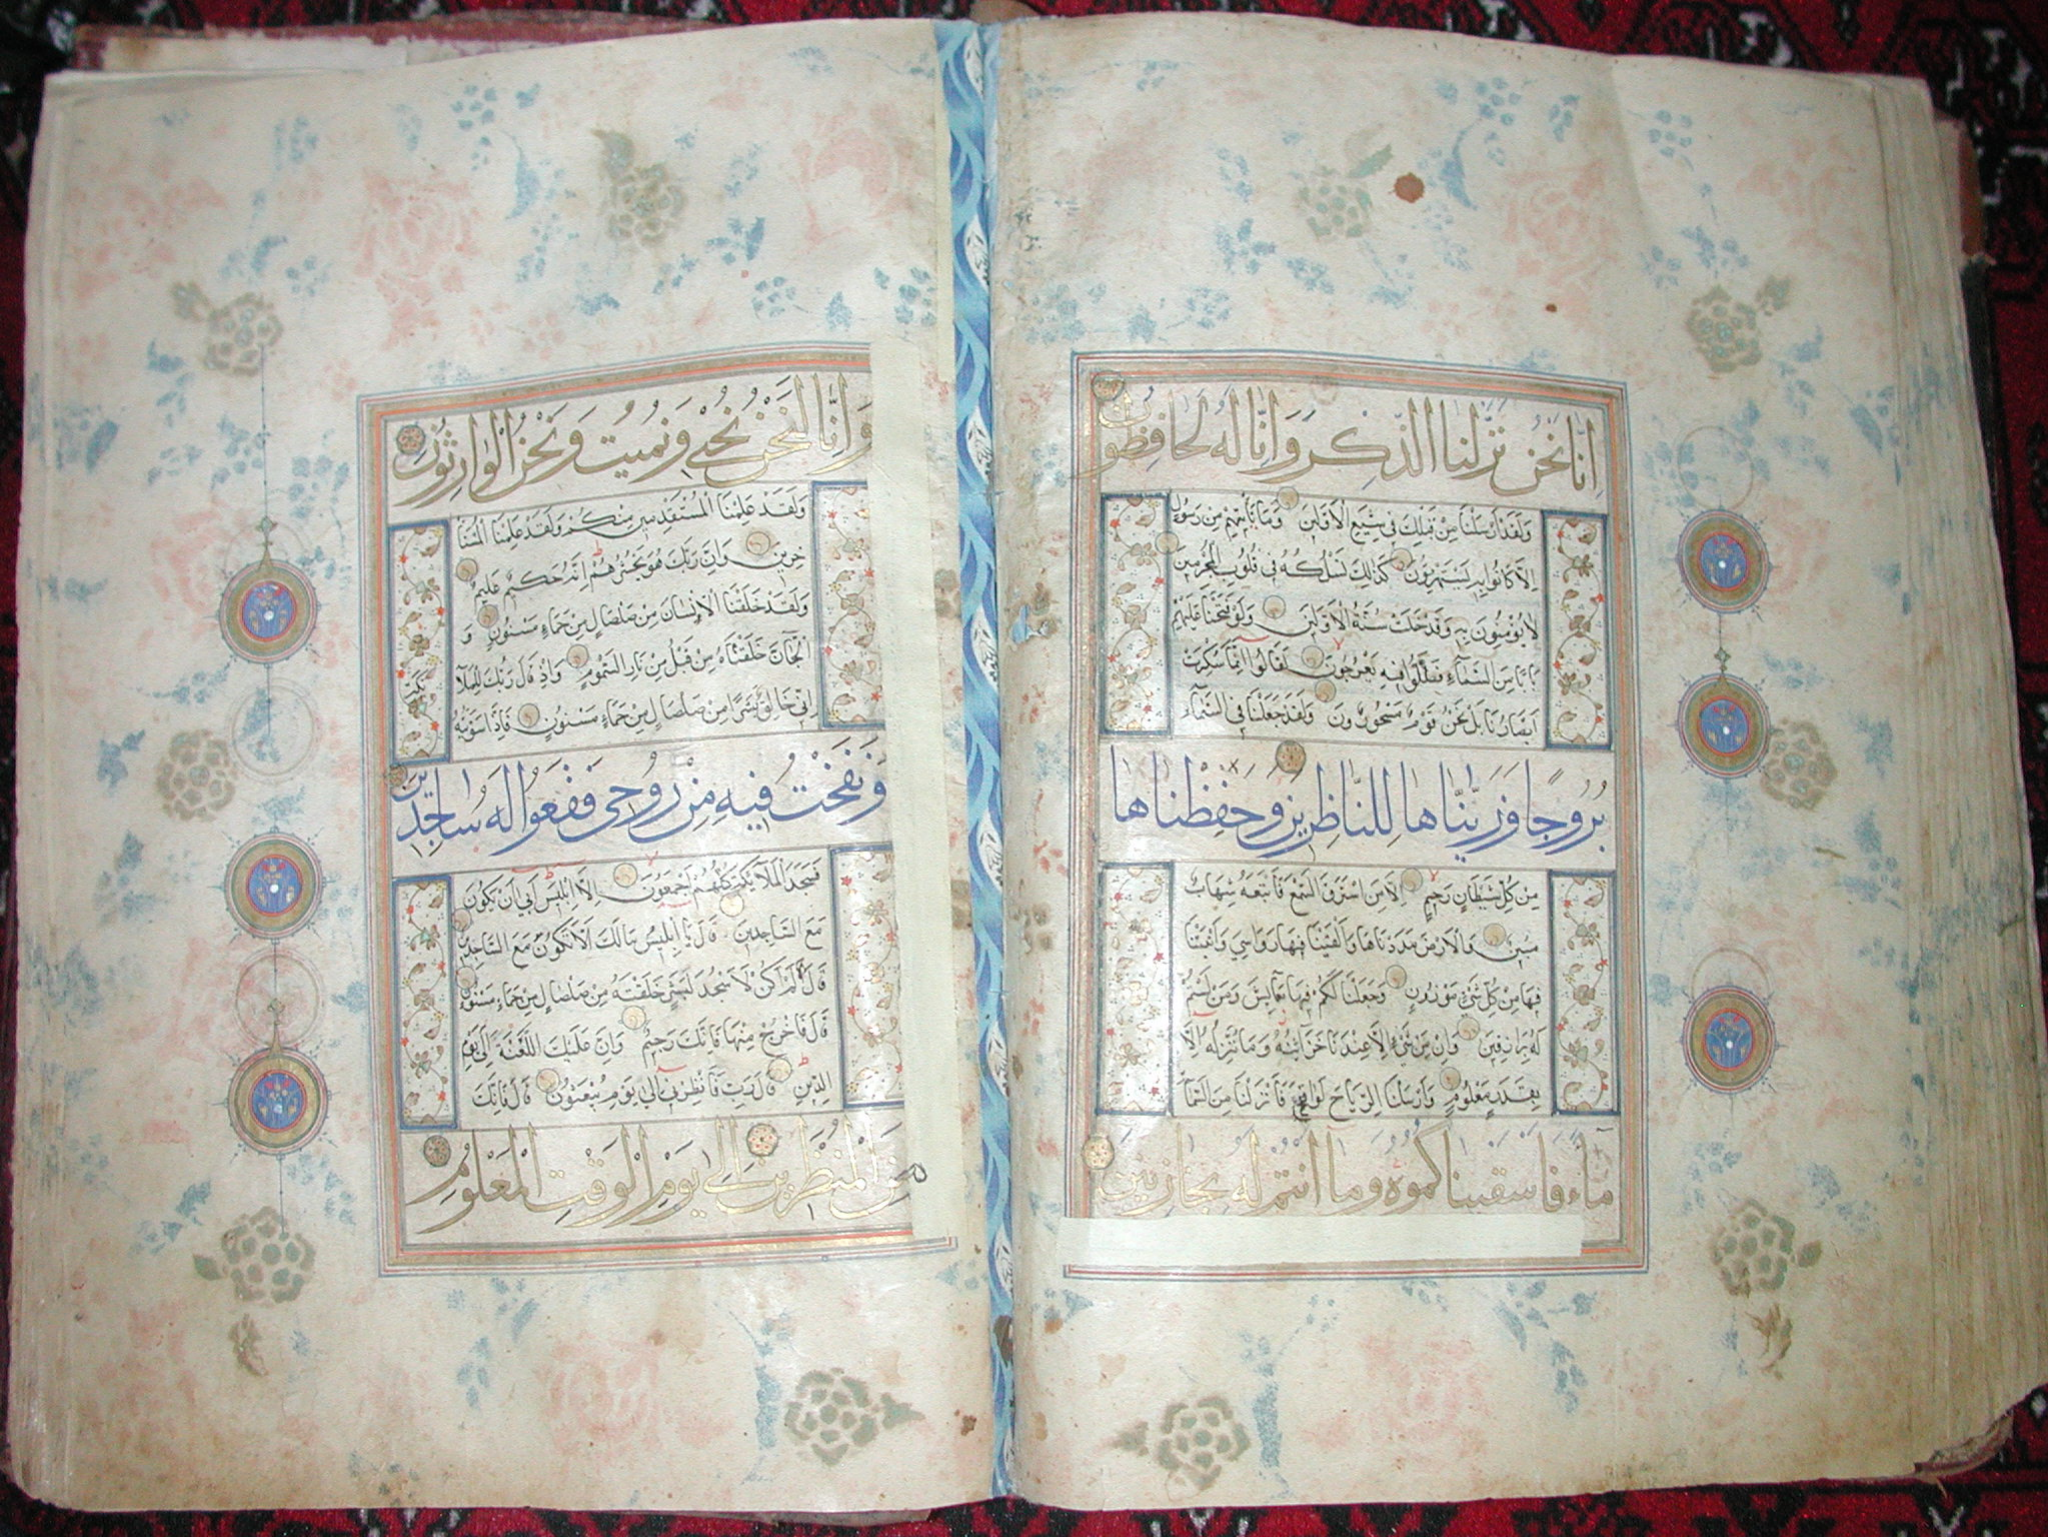 اِنّا نَحْنُ نَزَّلْنَا الذِّكْرَ وَاِنّا لَهُ لَحافِظُونَ
وَلَقَدْ اَرْسَلْنَا مِنْ قَبْلِكَ فِي شِيَعِ الْاَوَّلِينَ وَمَا يَأْتِيهِمْ مِنْ رَسُولٍ
اِلاَّ كَانُوا بِهِ يَسْتَهْزِؤُنَ كَذَلِكَ نَسْلُكُهُ فِي قُلُوبِ الْمُجْرِمِينَ
لَا يُؤْمِنُونَ بِهِ وَقَدْ خَلَتْ سُنَّةُ الْاَوَّلِينَ وَلَوْ فَتَحْنَا عَلَيْهِمْ
بَابًا مِنَ السَّمَآءِ فَظَلُّوا فِيهِ يَعْرُجُونَ لَقَالُوا اِنَّمَا سُكِّرَتْ
اَبْصَارُنَا بَلْ نَحْنُ قَوْمٌ مَسْحُورُونَ وَلَقَدْ جَعَلْنَا فِي السَّمَآءِ
بُرُوجًا وَزَيَّنَّاهَا لِلنَّاظِرِينَ وَحَفِظْنَاهَا
مِنْ كُلِّ شَيْطَانٍ رَجِيمٍ اِلاَّ مَنِ اسْتَرَقَ السَّمْعَ فَاَتْبَعَهُ شِهَابٌ
مُبِينٌ وَالْاَرْضَ مَدَدْنَاهَا وَاَلْقَيْنَا فِيهَا رَوَاسِيَ وَاَنْبَتْنَا
فِيهَا مِنْ كُلِّ شَيْءٍ مَوْزُونٍ وَجَعَلْنَا لَكُمْ فِيهَا مَعَايِشَ وَمَنْ لَسْتُمْ
لَهُ بِرَازِقِينَ وَاِنْ مِنْ شَيْءٍ اِلاَّ عِنْدَنَا خَزَائِنُهُ وَمَا نُنَزِّلُهُ اِلَّا
بِقَدَرٍ مَعْلُومٍ وَاَرْسَلْنَا الرِّيَاحَ لَوَاقِحَ فَاَنْزَلْنَا مِنَ السَّمَآءِ
مَآءً فَاَسْقَيْنَاكُمُوهُ وَمَا اَنْتُمْ لَهُ بِخَازِنِينَ
وَاِنَّا لَنَحْنُ نُحْيِي وَنُمِيتُ وَنَحْنُ الْوَارِثُونَ
وَلَقَدْ عَلِمْنَا الْمُسْتَقْدِمِينَ مِنْكُمْ وَلَقَدْ عَلِمْنَا الْمُسْتَأْ
خِرِينَ وَاِنَّ رَبَّكَ هُوَ يَحْشُرُهُمْ اِنَّهُ حَكِيمٌ عَلِيمٌ
وَلَقَدْ خَلَقْنَا الْاِنْسَانَ مِنْ صَلْصَالٍ مِنْ حَمَاءٍ مَسْنُونٍ وَ
الْجَآنَّ خَلَقْنَاهُ مِنْ قَبْلُ مِنْ نَارِ السَّمُومِ وَاِذْ قَالَ رَبُّكَ لِلْمَلَآ
ئِكَةِ
اِنِّي خَالِقٌ بَشَرًا مِنْ صَلْصَالٍ مِنْ حَمَاءٍ مَسْنُونٍ فَاِذَا سَوَّيْتُهُ
وَنَفَخْتُ فِيهِ مِنْ رُوحِي فَقَعُوا لَهُ سَاجِدِينَ
فَسَجَدَ الْمَلَآئِكَةُ كُلُّهُمْ اَجْمَعُونَ اِلاَّ اِبْلِيسَ اَبَى اَنْ يَكُونَ
مَعَ السَّاجِدِينَ قَالَ يَا اِبْلِيسُ مَالَكَ اَلاَّ تَكُونَ مَعَ السَّاجِدِينَ
قَالَ لَمْ اَكُنْ لِاَسْجُدَ لِبَشَرٍ خَلَقْتَهُ مِنْ صَلْصَالٍ مِنْ حَمَاءٍ مَسْنُونٍ
قَالَ فَاخْرُجْ مِنْهَا فَاِنَّكَ رَجِيمٌ وَاِنَّ عَلَيْكَ اللَّعْنَةَ اِلَى يَوْمِ
الدِّينِ قَالَ رَبِّ فَاَنْظِرْنِي اِلَى يَوْمِ يُبْعَثُونَ قَالَ فَاِنَّكَ
مِنَ الْمُنْظَرِينَ اِلَى يَوْمِ الْوَقْتِ الْمَعْلُومِ